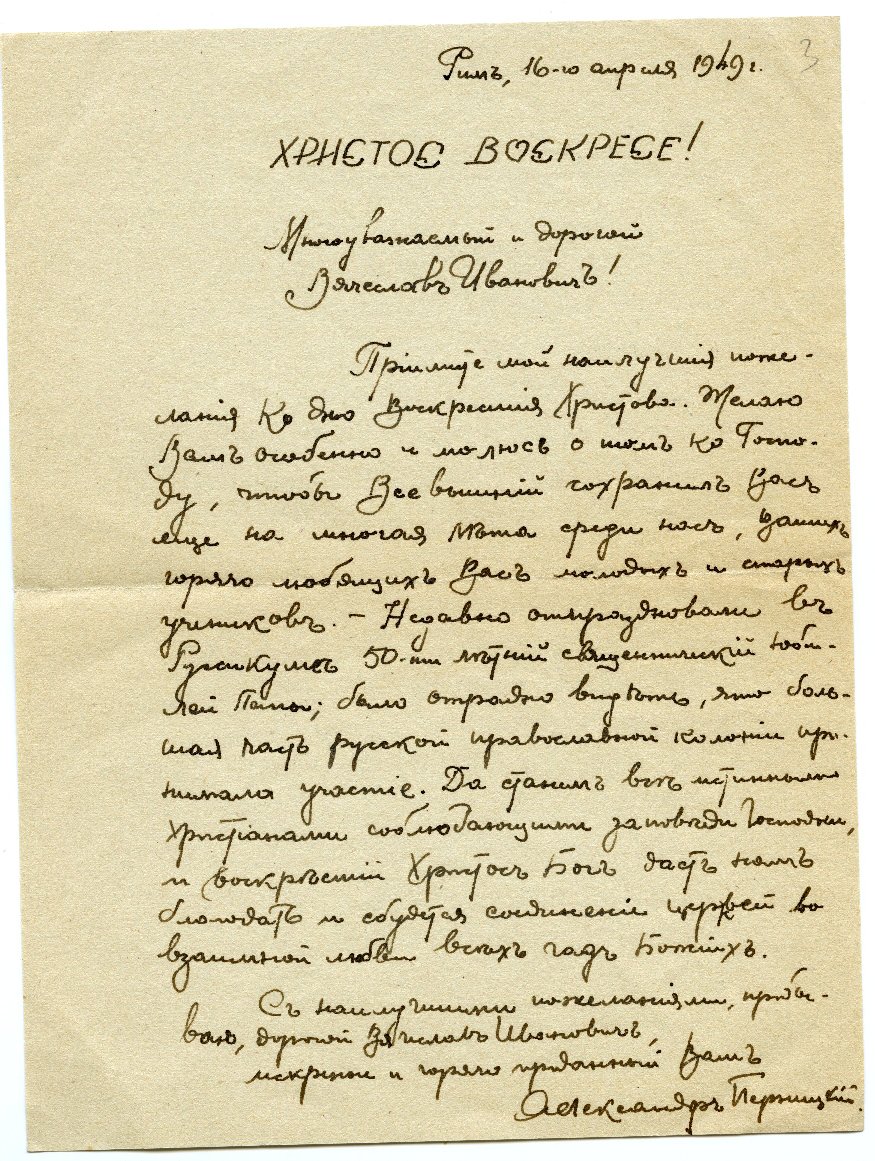 Римъ, 16-го апреля 1949 г.
3
ХРИСТОС ВОСКРЕСЕ!
Многоуважаемый и дорогой
Вячеславъ Ивановичъ!
Прiимите мои наилучшiя поже-
ланiя ко дню Воскресенiя Христова. Желаю
Вамъ особенно и молюсь о томъ ко Госпо-
ду, чтобы Всевышнiй сохранилъ Васъ
еще на многая лѣта среди насъ, Вашихъ
горячо любящихъ Васъ молодыхъ и старыхъ
учениковъ. – Недавно отпраздновали въ
50-ти лѣтнiй священническiй юби-
лей Папы; было отрадно видѣть, что боль-
шая часть русской православной колонiи при-
нимала участiе. Да станемъ всѣ истинными
христiанами соблюдающими заповѣди Господни,
и воскресшiй Христосъ Богъ дастъ намъ
благодать и сбудется соединенiе церквей во
взаимной любви всѣхъ чадъ Божiихъ.
Съ наилучшими пожеланiями, пребы-
ваю, дорогой Вячеславъ Ивановичъ,
искренне и горячо преданный Вамъ
Александръ